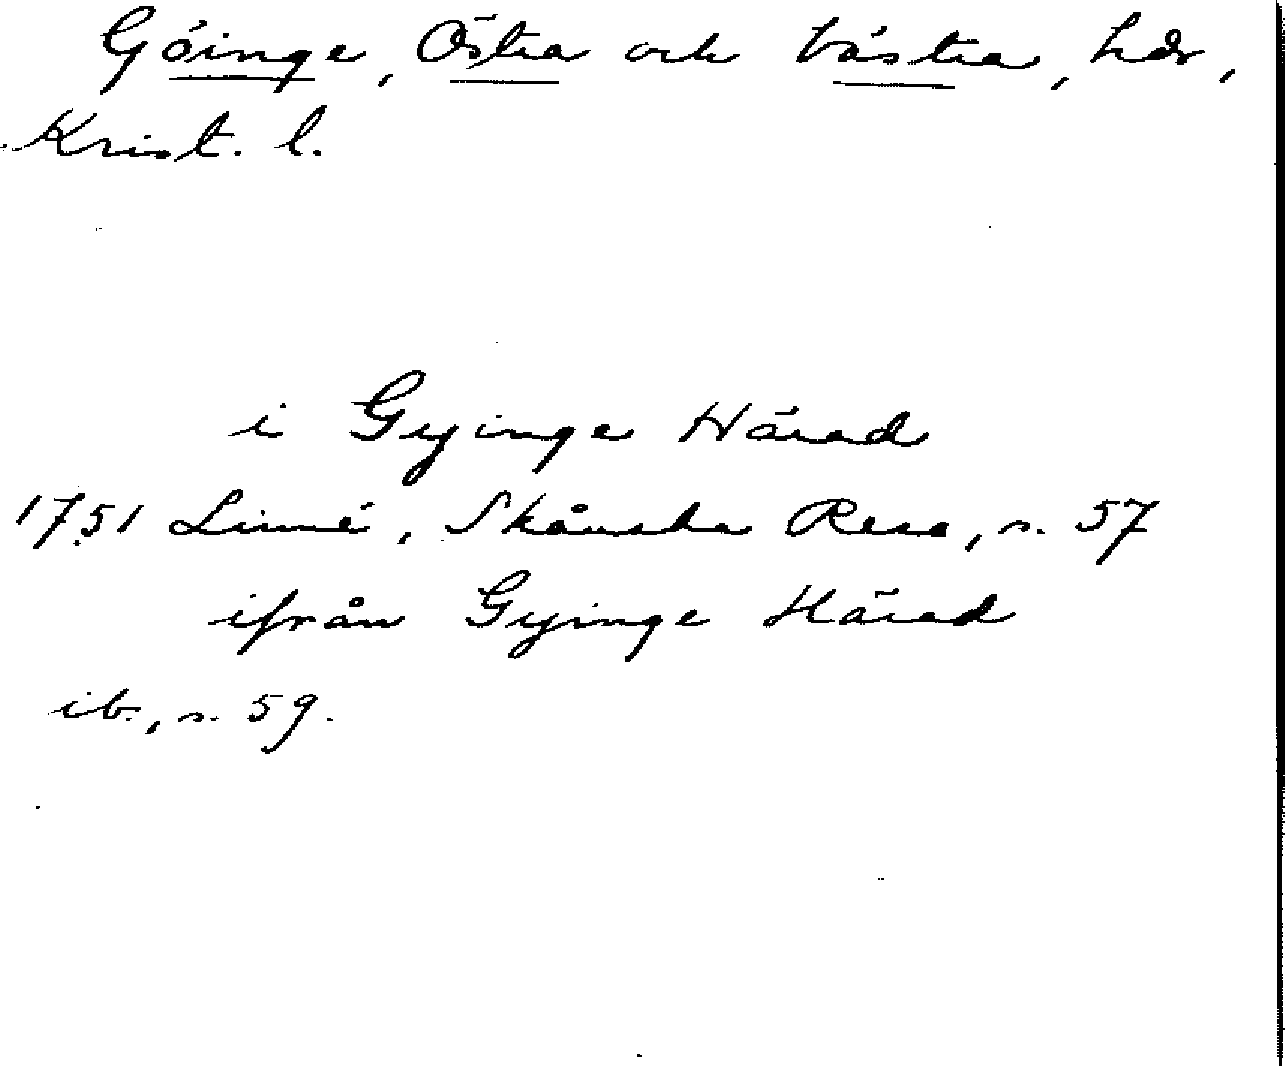 Göinge, Östra och Västra, hdr,
Krist. l.
i Gyinge Härad
1751 Linné, Skånska Resa, s. 57
ifrån Gyinge Härad
ib., s. 59.